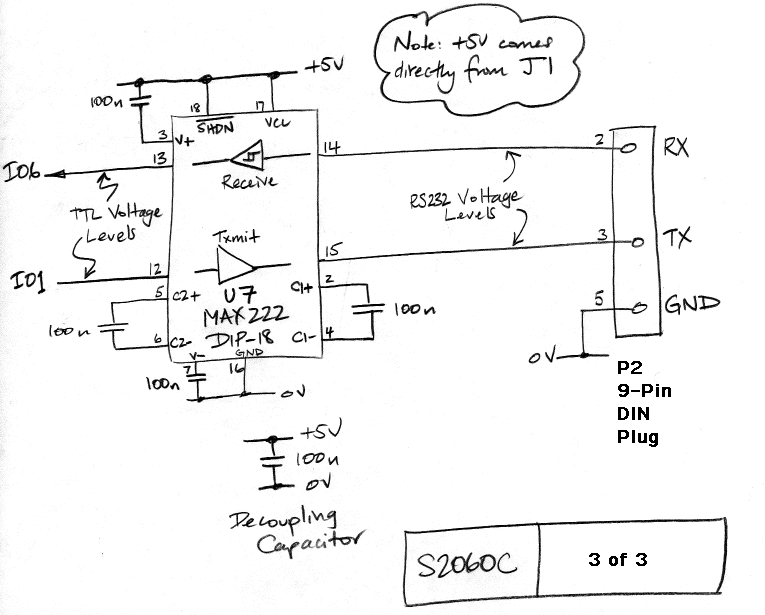 Note: +5V comes
directly from J1
+5V
100n
18
17
SHDN
VCC
3
V+
13
14
2
RX
IO6
Receive
TTL Voltage
Levels
RS232 Voltage
Levels
Txmit
15
3
TX
IO1
12
5
C2+
C1+
2
U7
MAX222
DIP-18
100n
100n
6
C2-
C1-
4
5
GND
V-
GND
7
16
100n
0V
0V
P2
9-Pin
DIN
Plug
+5V
100n
0V
Decoupling
Capacitor
S2060C
3 of 3